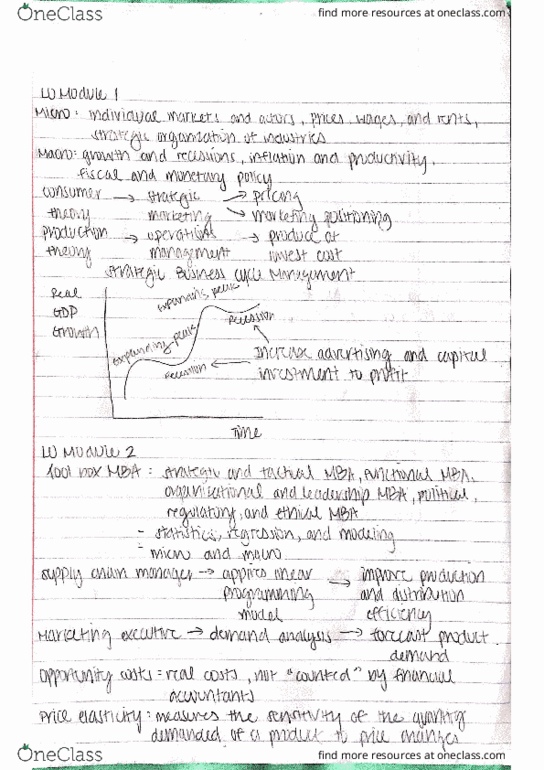 OneClass
find more resources at oneclass.com
LO Module 1
Micro: individual markets and actors, prices, wages, and rents,
strategic organization of industries
Macro: growth and recessions, inflation and productivity,
fiscal and monetary policy
consumer → strategic → pricing
theory marketing → marketing positioning
production → operations → produce at
theory management lowest cost
Strategic Business Cycle Management
Real
GDP
Growth
expanding, peak
recession
expanding, peak
recession
Increase advertising and capital
investment to profit
Time
LO Module 2
Tool box MBA: strategic and tactical MBA, functional MBA,
organizational and leadership MBA, political,
regulatory, and ethical MBA
- statistics, regression, and modeling
- micro and macro
supply chain manager → applies linear → improve production
programming and distribution
model efficiency
Marketing executive → demand analysis → forecast product
demand
Opportunity costs = real costs, not "counted" by financial
accountants
Price elasticity: measures the sensitivity of the quantity
demanded of a product to price changes
OneClass
find more resources at oneclass.com